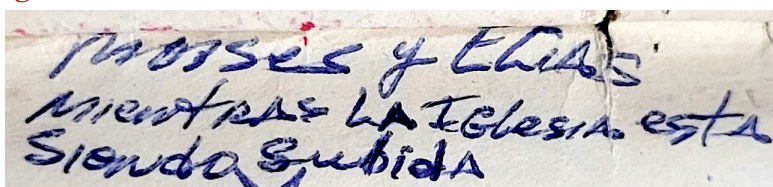 Moises y Elias
Mientras LA Iglesia esta
Siendo Subida